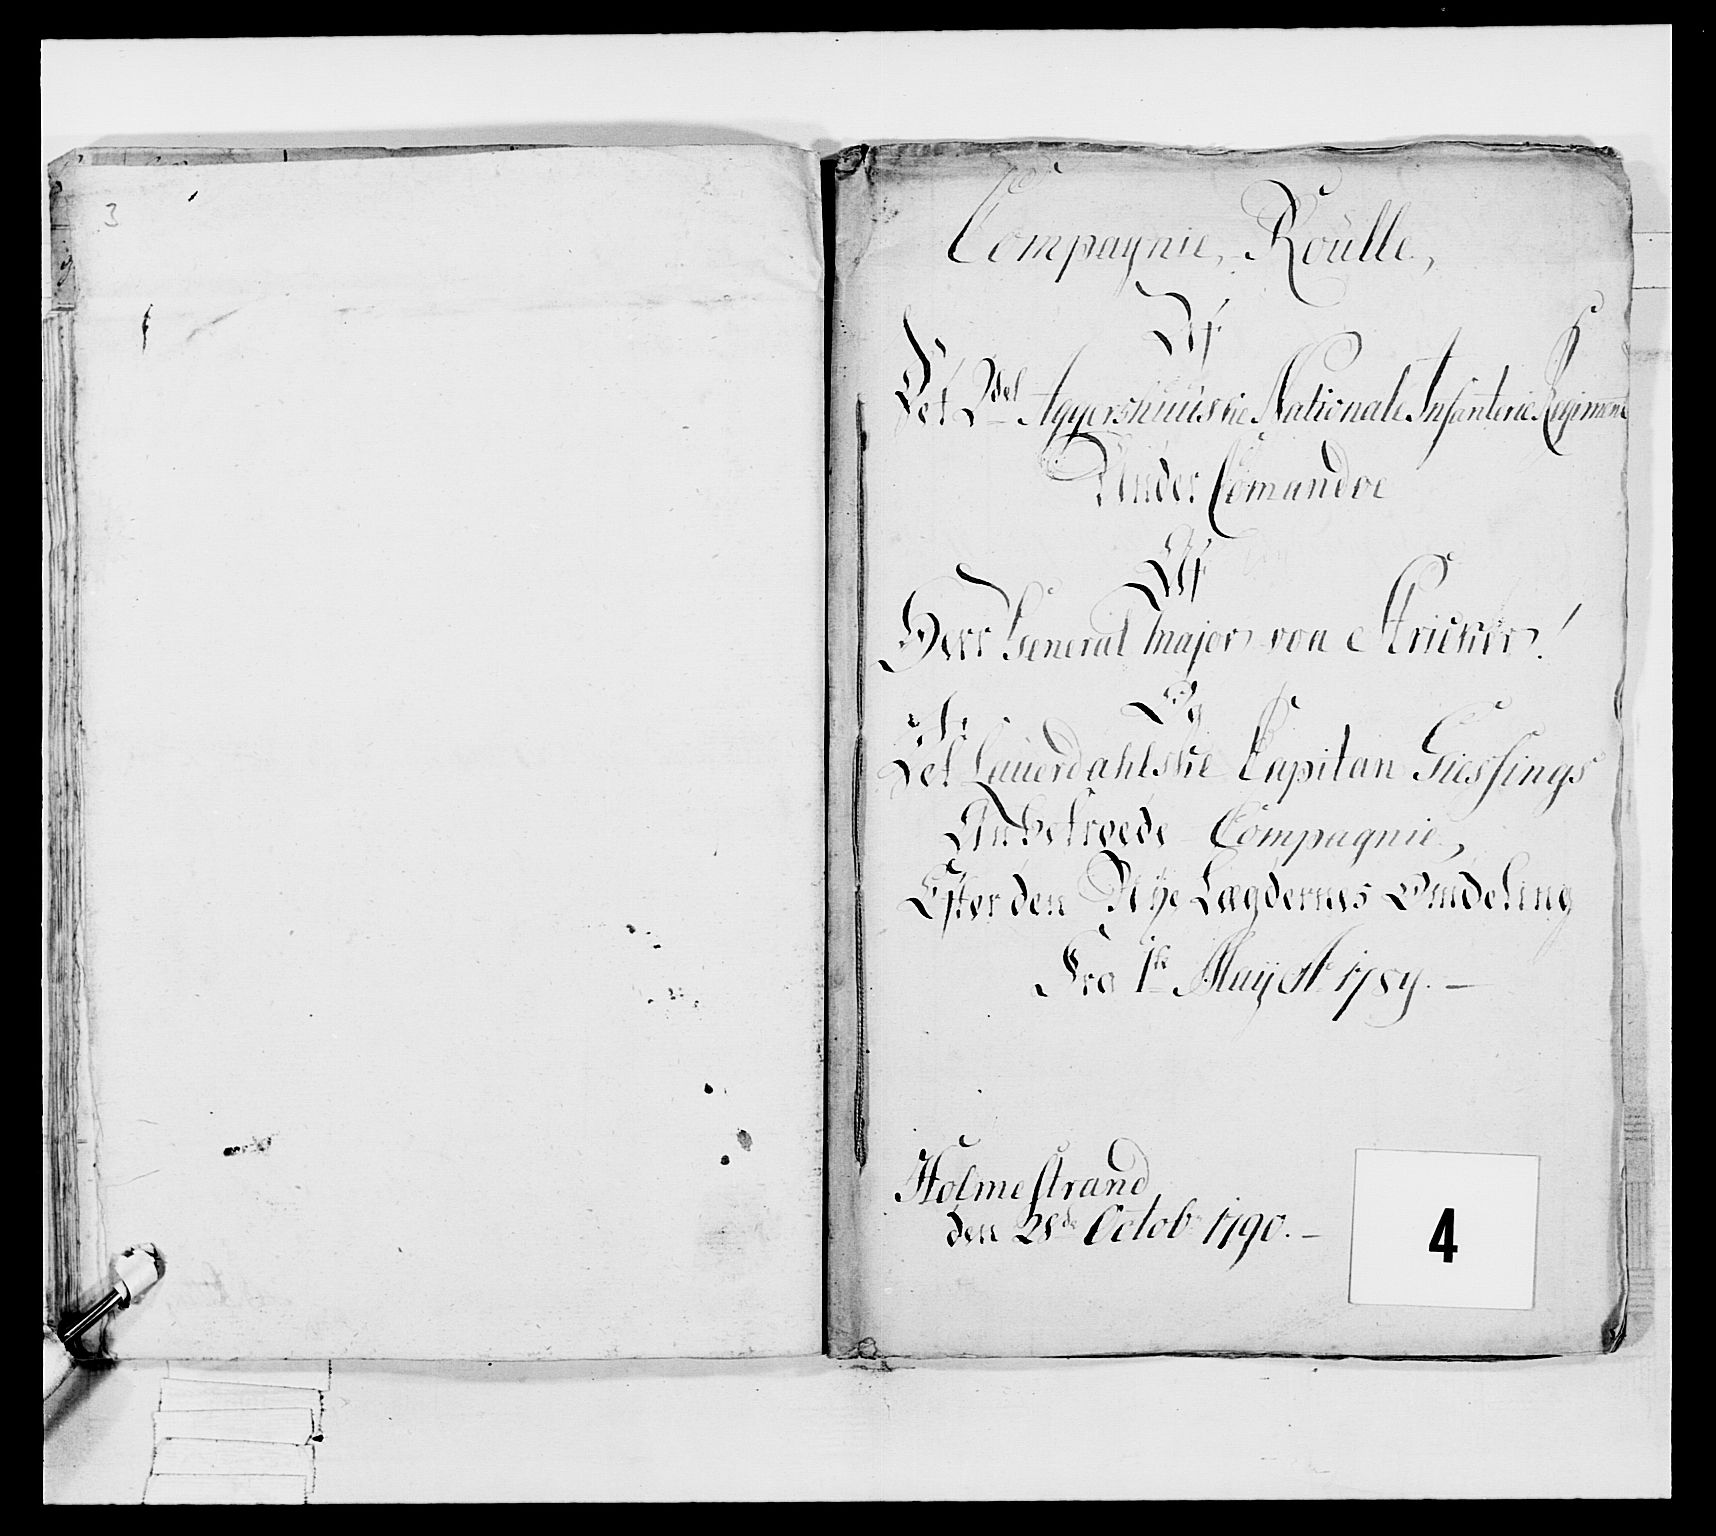 3
Compagnie, Roulle,
Af
Det 2det Aggershuuiske Nationale Infanterie Regiment
Under Comandoe
Af
Herr General Major von Stricker!
Og
Det Lauerdahlske Capitan Giessings
Anbetroede Compagnie,
Efter den Nÿe Lægdernes Omdeling
Fra 1te Maÿ Ao 1789. —
Holmestrand
den 28de Octobr 1790. —
4